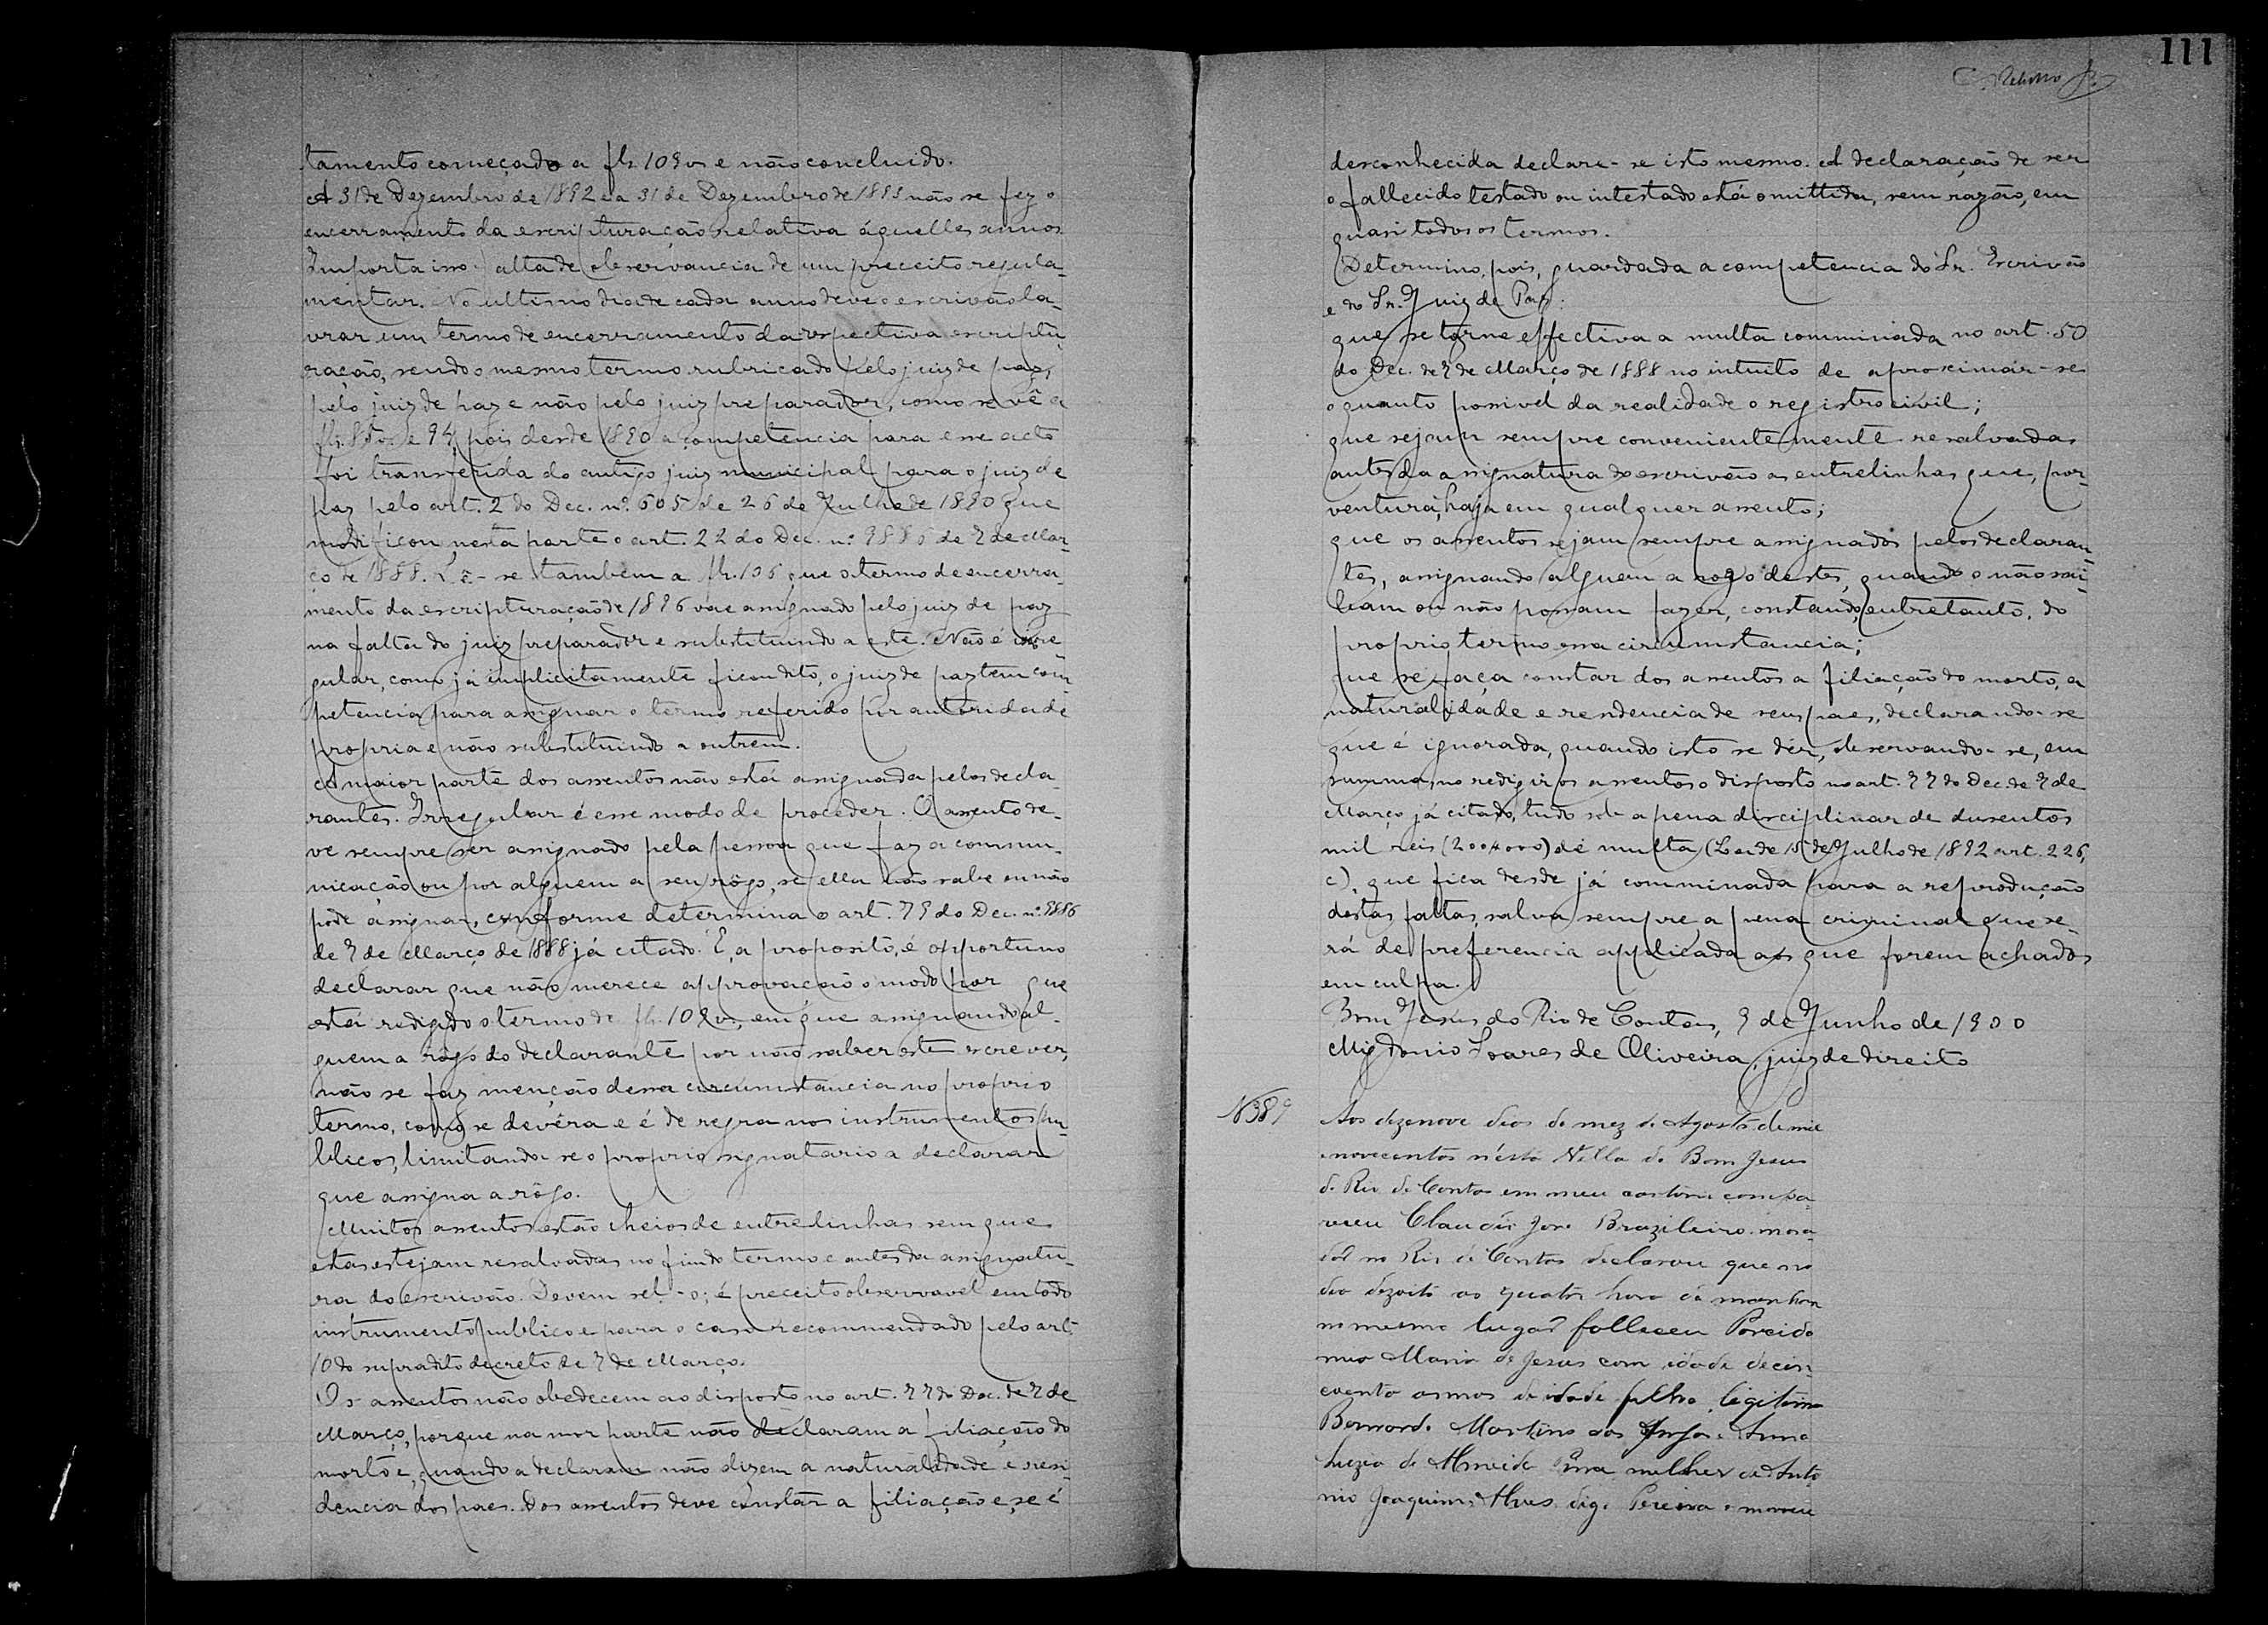 tamento começado a fls. 109 v. e não concluido.
A 31 de Dezembro de 1892 e a 31 de Dezembro de 1899 não se fez o
encerramento da escripturação relativa áquelles annos.
Importa isso falta de observancia de um preceito regula-
mentar. No ultimo dia de cada anno deve o escrivão la-
vrar um termo de encerramento da respectiva escriptu-
ração, sendo o mesmo termo rubricado pelo juiz de paz,
pelo juiz de paz e não pelo juiz preparador, como se vê a
fls. e 94, pois desde 1890 a competencia para esse acto
foi transferida do antigo juiz municipal para o juiz de
paz pelo art. 2 do Dec. nº. 605 de 26 de Julho de 1890 que
modificou nesta parte o art. 22 do Dec. n.º 9886 de 7 de Mar-
ço de 1888. Lê-se tambem a fls. 106 que o termo de encerra-
mento da escripturação de 1896 vae assignado pelo juiz de paz
na falta do juiz preparador e substituindo a este. Não é irre-
gular, como já implicitamente ficou dito, o juiz de paz tem com-
petencia para assignar o termo referido por autoridade
propria e não substituindo a outrem.
A maior parte dos assentos não está assignada pelos decla-
rantes. Irregular é esse modo de proceder. O assento de-
ve sempre ser assignado pela pessoa que faz a commu-
nicação ou por alguem a seu rôgo, se ella não sabe ou não
pode assignar, conforme determina o art. 79 do Dec. nº. 9886
de 7 de Março de 1888 já citado. E, a proposito, é opportuno
declarar que não merece approvação o modo por que
está redigido o termo de fls. 109 v., em que assignando al-
guem a rôgo do declarante por não saber este escrever,
não se faz menção dessa circumstancia no proprio
termo, como se devêra e é de regra nos instrumentos pu-
blicos, limitando-se o proprio signatario a declarar
que assigna a rôgo.
Muitos assentos estão cheios de entrelinhas sem que
estas estejam resalvadas no fim do termo e antes da assignatu-
ra do escrivão. Devem sel-o; é preceito observavel em todo
instrumento publico e para o caso recommendado pelo art.
10 do supradito decreto de 7 de Março.
Os assentos não obedecem ao disposto no art. 77 do Dec. de 7 de
Março, porque na mor parte não declaram a filiação do
morto e, quando a declaram não dizem a naturalidade e resi-
dencia dos paes. Dos assentos deve constar a filiação e, se é
111
desconhecida declare-se isto mesmo. A declaração de ser
o fallecido testado ou intestado está omittida, sem razão, em
quasi todos os termos.
Determino, pois, guardada a competencia do Sr. Escrivão
e do Sr. Juiz de Paz:
que se torne effectiva a multa comminada no art. 50
do Dec. de 7 de Março de 1888 no intuito de aproximar-se
o quanto possivel da realidade o registro civil;
que sejam sempre convenientemente resalvadas
antes da assignatura do escrivão as entrelinhas que, por-
ventura, haja em qualquer assento;
que os assentos sejam sempre assignados pelos declaran-
tes, assignando alguem a rogo destes, quando o não sai-
bam ou não possam fazer, constando, entretanto, do
proprio termo essa circumstancia;
que se faça constar dos assentos a filiação do morto, a
naturalidade e residencia de seus paes, declarando-se
que é ignorada, quando isto se dér, observando-se, em
summa, no redigir os assentos o disposto no art. 77 do Dec. de 7 de
Março já citado, tudo sob a pena disciplinar de dusentos
mil reis (200$000) de multa (Lei de 15 de Julho de 1892 art. 226,
c), que fica desde já comminada para a reproducção
destas faltas, salva sempre, a pena criminal que se-
rá de preferencia applicada aos que forem achados
em culpa.
Bom Jesus do Rio de Contas, 9 de Junho de 1900
Migdonio Soares de Oliveira, juiz de direito
Nº 389
Aos dezenove dias do mez de Agosto de mil
e novecentos n'esta Villa do Bom Jesus
do Rio de Contas em meu cartorio compa-
receu Claudio Jose Brazileiro mora-
dor no Rio de Contas declarou que no
dia dezoito as quatro hora da manhan
no mesmo lugar falleceu
Maria de Jesus com idade de cin-
coenta annos de idade filha legitima
Bernardo Martins dos Anjos e Anna
Luzia de Almeida mulher de Anto
nio Joaquim Alves digo Pereira e morreu